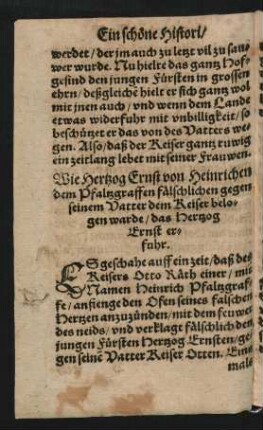 Ein schöne Histori/
werdet / der jm auch zu letzt vil zu sau-
wer wurde. Nu hielte das gantz Hof-
gesind den jungen Fürsten in grossen
ehrn / deßgleichẽ hielt er sich gantz wol
mit jnen auch / vnd wenn dem Lande
etwas widerfuhr mit vnbilligkeit / so
beschützet er das von des Vatters we-
gen. Also / daß der Keiser gantz ruwig
ein zeitlang lebet mit seiner Frauwen.
Wie Hertzog Ernst von Heinrichen
dem Pfaltzgraffen fälschlichen gegen
seinem Vatter dem Keiser belo-
gen warde / das Hertzog
Ernst er-
fuhr.
ES geschahe auff ein zeit / daß des
Keisers Otto Räth einer / mit
Namen Heinrich Pfaltzgraf-
fe / anfienge den Ofen seines falschen
Hertzen anzuzünden / mit dem feuwer
des neids / vnd verklagt fälschlich den
jungen Fürsten Hertzog Ernsten / ge-
gen seinẽ Vatter Keiser Otten. Eins
mals